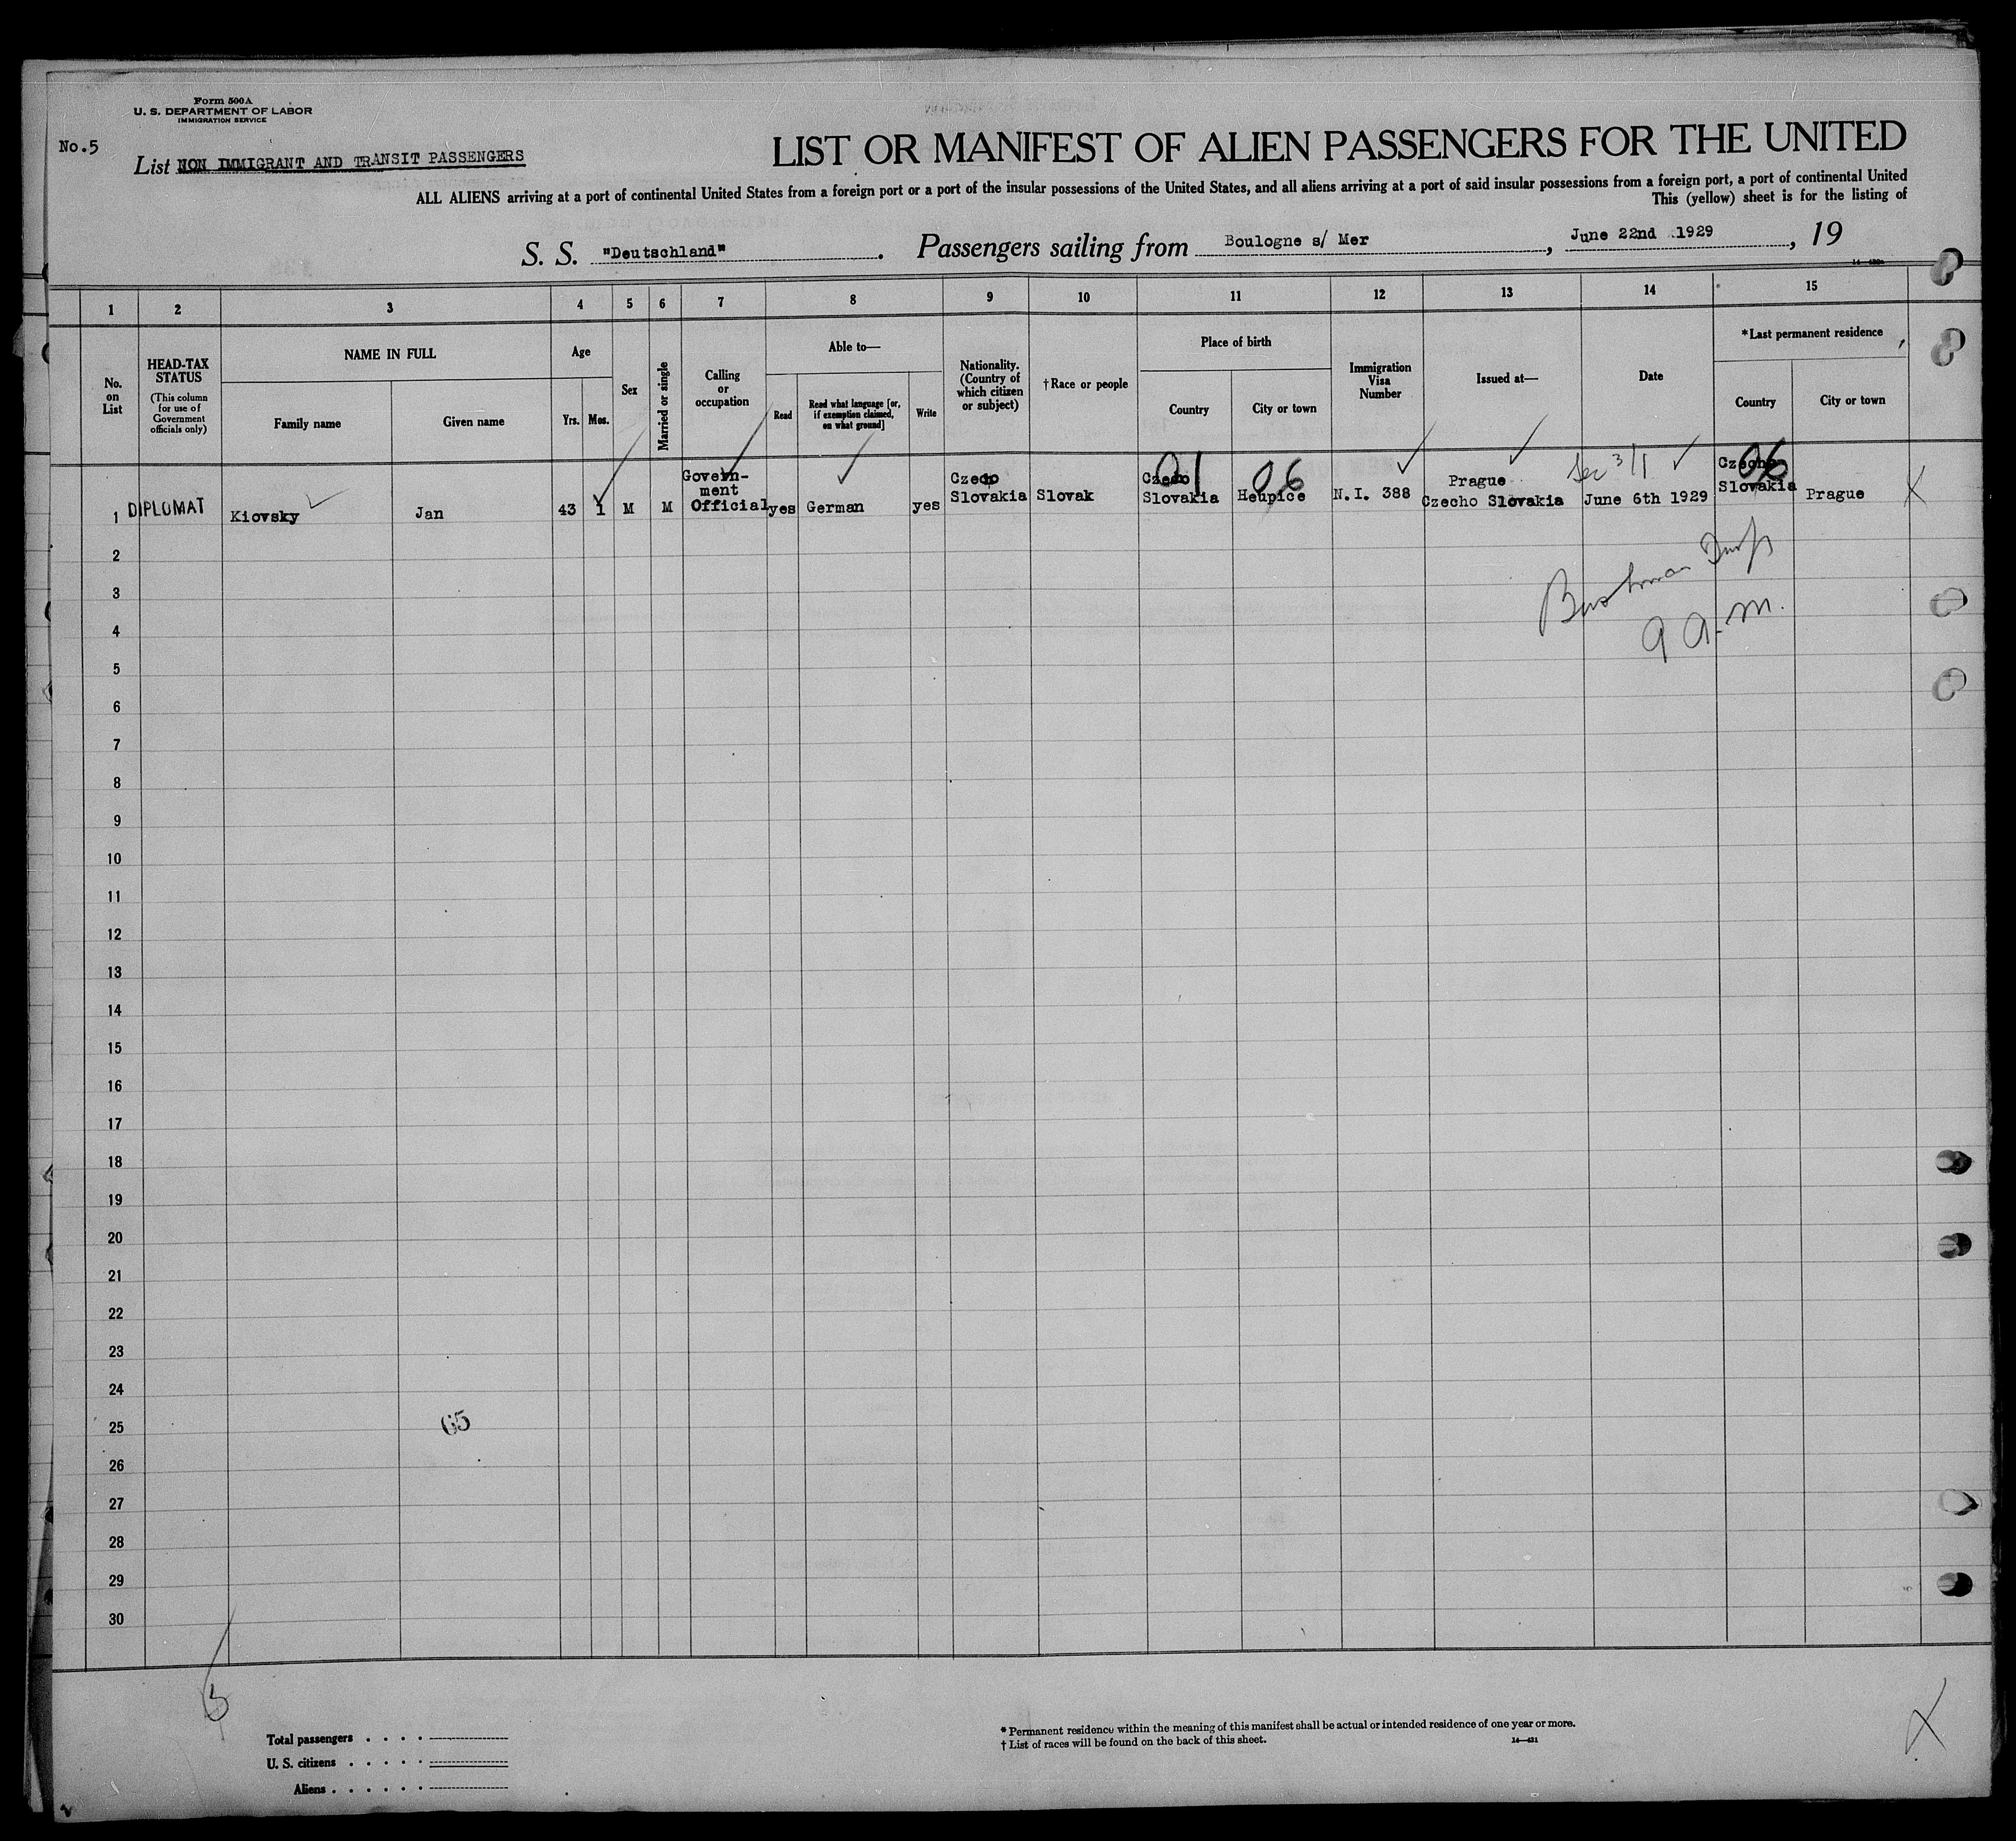 Form 500A
U. S. DEPARTMENT OF LABOR
IMMIGRATION SERVICE
No.5
List NON IMMIGRANT AND TRANSIT PASSENGERS
LIST OR MANIFEST OF ALIEN PASSENGERS FOR THE UNITED
ALL ALIENS arriving at a port of continental United States from a foreign port or a port of the insular possessions of the United States, and all aliens arriving at a port of said insular possessions from a foreign port, a port of continental United
This (yellow) sheet is for the listing of
S. S. "Deutschland". Passengers sailing from Boulogne s/ Mer, June 22nd 1929, 19
1 2 3 4 5 6 7 8 9 10 11 12 13 14 15
No. on List
HEAD-TAX STATUS
(This column for use of Government officials only)
NAME IN FULL
Family name
Given name
Age
Yrs.
Mos.
Sex
Married or single
Calling or occupation
Able to—
Read
Read what language [or, if exemption claimed, on what ground]
Write
Nationality. (Country of which citizen or subject)
†Race or people
Place of birth
Country
City or town
Immigration Visa Number
Issued at—
Date
*Last permanent residence
Country
City or town
1 DIPLOMAT Kiovsky Jan 43 1 M M Government Official yes German yes Czecho Slovakia Slovak Czecho Slovakia Heupice N.I. 388 Prague Czecho Slovakia June 6th 1929 Czecho Slovakia Prague
01
06
Sec 3/1
06
X
9 a.m.
2
3
4
5
6
7
8
9
10
11
12
13
14
15
16
17
18
19
20
21
22
23
24
25
65
26
27
28
29
30
Total passengers
U. S. citizens
Aliens
* Permanent residence within the meaning of this manifest shall be actual or intended residence of one year or more.
† List of races will be found on the back of this sheet.
14—431
X